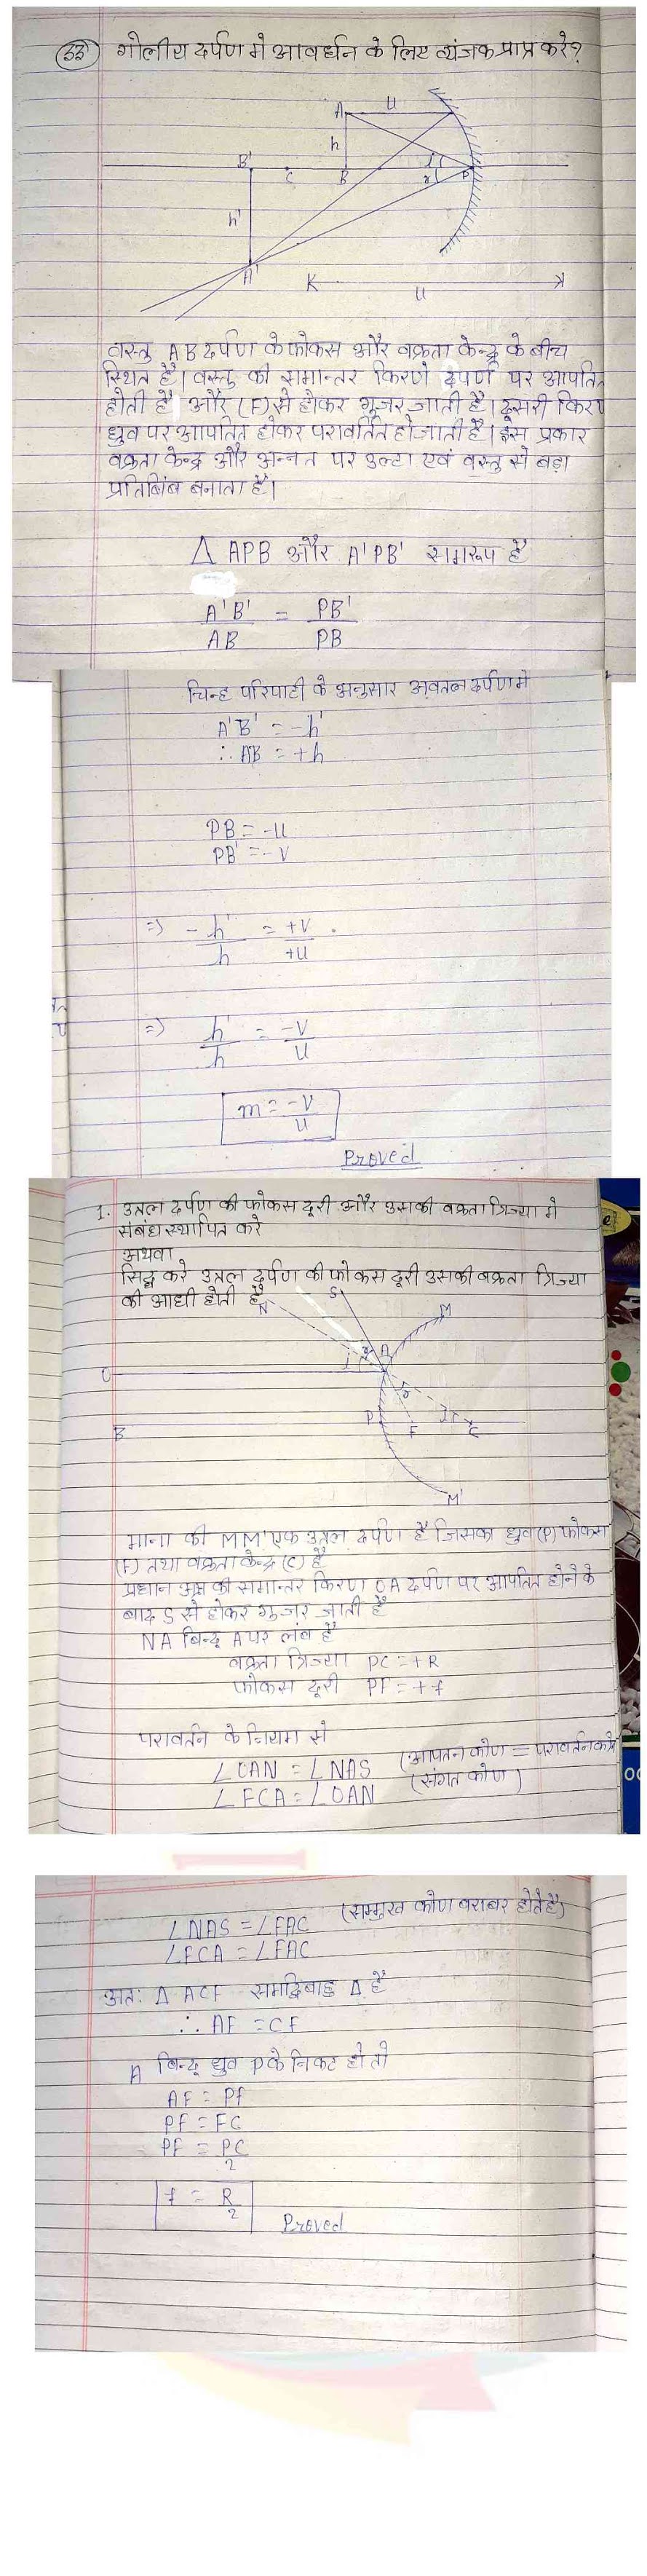 33 गोलीय दर्पण में आवर्धन के लिए व्यंजक प्राप्त करे?
A
U
h
B'
C
B
i
r
P
h'
A'
U
वस्तु AB दर्पण के फोकस और वक्रता केन्द्र के बीच
स्थित है। वस्तु की समान्तर किरणे दर्पण पर आपतित
होती है और (F) से होकर गुजर जाती है। दूसरी किरण
ध्रुव पर आपतित होकर परावर्तित हो जाती है। इस प्रकार
वक्रता केन्द्र और अनन्त पर उल्टा एवं वस्तु से बड़ा
प्रतिबिंब बनाता है।
Δ APB और A'PB' समरूप है
A'B' / AB = PB' / PB
चिन्ह परिपाटी के अनुसार अवतल दर्पण मे
A'B' = -h'
∴ AB = +h
PB = -U
PB' = -V
=> -h' / h = +V / +U
=> h' / h = -V / U
m = -V / U
Proved
1. उत्तल दर्पण की फोकस दूरी और उसकी वक्रता त्रिज्या मे
संबंध स्थापित करे
अथवा
सिद्ध करे उत्तल दर्पण की फोकस दूरी उसकी वक्रता त्रिज्या
की आधी होती है
N
S
M
A
i
r
O
B
P
F
C
M'
माना की MM' एक उत्तल दर्पण है जिसका ध्रुव (P) फोकस
(F) तथा वक्रता केन्द्र (C) है
प्रधान अक्ष की समान्तर किरण OA दर्पण पर आपतित होने के
बाद S से होकर गुजर जाती है
NA बिन्दु A पर लंब है
वक्रता त्रिज्या PC = +R
फोकस दूरी PF = +f
परावर्तन के नियम से
∠OAN = ∠NAS (आपतन कोण = परावर्तन कोण)
∠FCA = ∠OAN (संगत कोण)
∠NAS = ∠FAC (सम्मुख कोण बराबर होते है)
∠FCA = ∠FAC
अतः Δ ACF समद्विबाहु Δ है
∴ AF = CF
A बिन्दु ध्रुव P के निकट हो तो
AF = PF
PF = FC
PF = PC / 2
f = R / 2
Proved